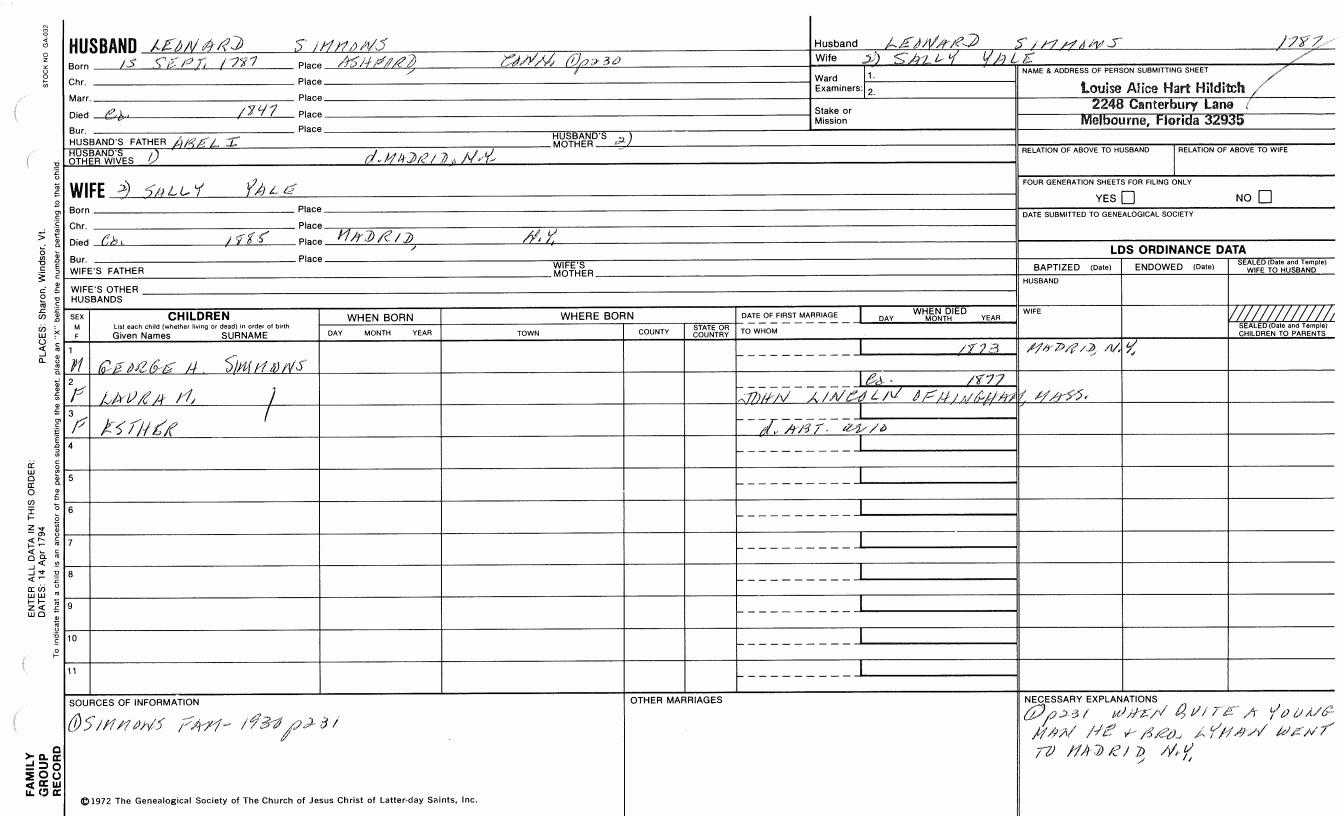 STOCK NO GA-032
HUSBAND LEONARD SIMMONS
Born 15 SEPT. 1787 Place ASHFORD, CONN. ① p230
Chr. Place
Marr. Place
Died Ca. 1847 Place
Bur. Place
HUSBAND'S FATHER ABEL I HUSBAND'S MOTHER 2)
HUSBAND'S OTHER WIVES 1) d. MADRID, N.Y.
WIFE 2) SALLY YALE
Born Place
Chr. Place
Died Ca. 1885 Place MADRID, N.Y.
Bur. Place
WIFE'S FATHER WIFE'S MOTHER
WIFE'S OTHER HUSBANDS
Husband LEONARD SIMMONS 1787
Wife 2) SALLY YALE
Ward Examiners: 1.
2.
Stake or Mission
NAME & ADDRESS OF PERSON SUBMITTING SHEET
Louise Alice Hart Hilditch
2248 Canterbury Lane
Melbourne, Florida 32935
RELATION OF ABOVE TO HUSBAND RELATION OF ABOVE TO WIFE
FOUR GENERATION SHEETS FOR FILING ONLY
YES NO
DATE SUBMITTED TO GENEALOGICAL SOCIETY
LDS ORDINANCE DATA
BAPTIZED (Date) ENDOWED (Date) SEALED (Date and Temple) WIFE TO HUSBAND
HUSBAND
WIFE
SEALED (Date and Temple) CHILDREN TO PARENTS
SEX M F
CHILDREN
List each child (whether living or dead) in order of birth
Given Names SURNAME
WHEN BORN
DAY MONTH YEAR
WHERE BORN
TOWN COUNTY STATE OR COUNTRY
DATE OF FIRST MARRIAGE
TO WHOM
WHEN DIED
DAY MONTH YEAR
1 M GEORGE H. SIMMONS 1873 MADRID, N.Y.
2 F LAURA M. Ca. 1877
JOHN LINCOLN OF HINGHAM, MASS.
3 F ESTHER d. ABT.
4
5
6
7
8
9
10
11
SOURCES OF INFORMATION
① SIMMONS FAM- 1930 p231
OTHER MARRIAGES
NECESSARY EXPLANATIONS
① p231 WHEN QUITE A YOUNG
MAN HE + BRO. LYMAN WENT
TO MADRID, N.Y.
©1972 The Genealogical Society of The Church of Jesus Christ of Latter-day Saints, Inc.
FAMILY GROUP RECORD
ENTER ALL DATA IN THIS ORDER:
DATES: 14 Apr 1794 PLACES: Sharon, Windsor, Vt.
To indicate that a child is an ancestor of the person submitting the sheet, place an "X" behind the number pertaining to that child.